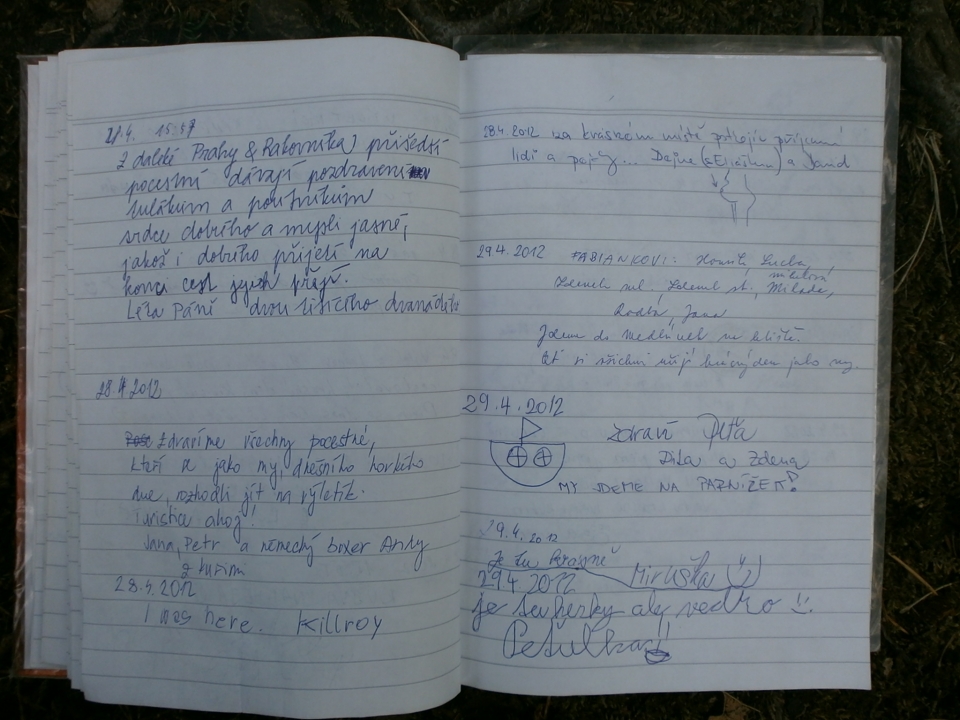 28.4. 15:57
Z daleké Prahy & Rakovníka přišedší
pocestní dávají pozdravení
tulákům a poutníkům
srdce dobrého a mysli jasné,
jakož i dobrého přijetí na
konci cest jejich přejí.
Léta Páně dvou tisícího dvanáctého
28.4.2012
Zdravíme všechny pocestné,
kteří se jako my, dnešního horkého
dne, rozhodli jít na výletík.
Turistice ahoj!
Jana, Petr a německý boxer Andy
28.4.2012
I was here. Killroy
28.4.2012 na krásném místě potkáš příjemné
lidi a pejsky... a
29.4.2012 FABIÁNKOVI: Lucka,
Zdeněk ml., Zdeněk st., Milada,
Radka, Jana
Jdeme do na letiště.
Ať si všichni užijí krásný den jako my.
29.4.2012
Zdraví Péťa
a Zdena
MY JDEME NA PARNÍČEK!
29.4.2012
Je tu Miruška
29.4.2012
je tu hezky ale vedro
Peťulka!!